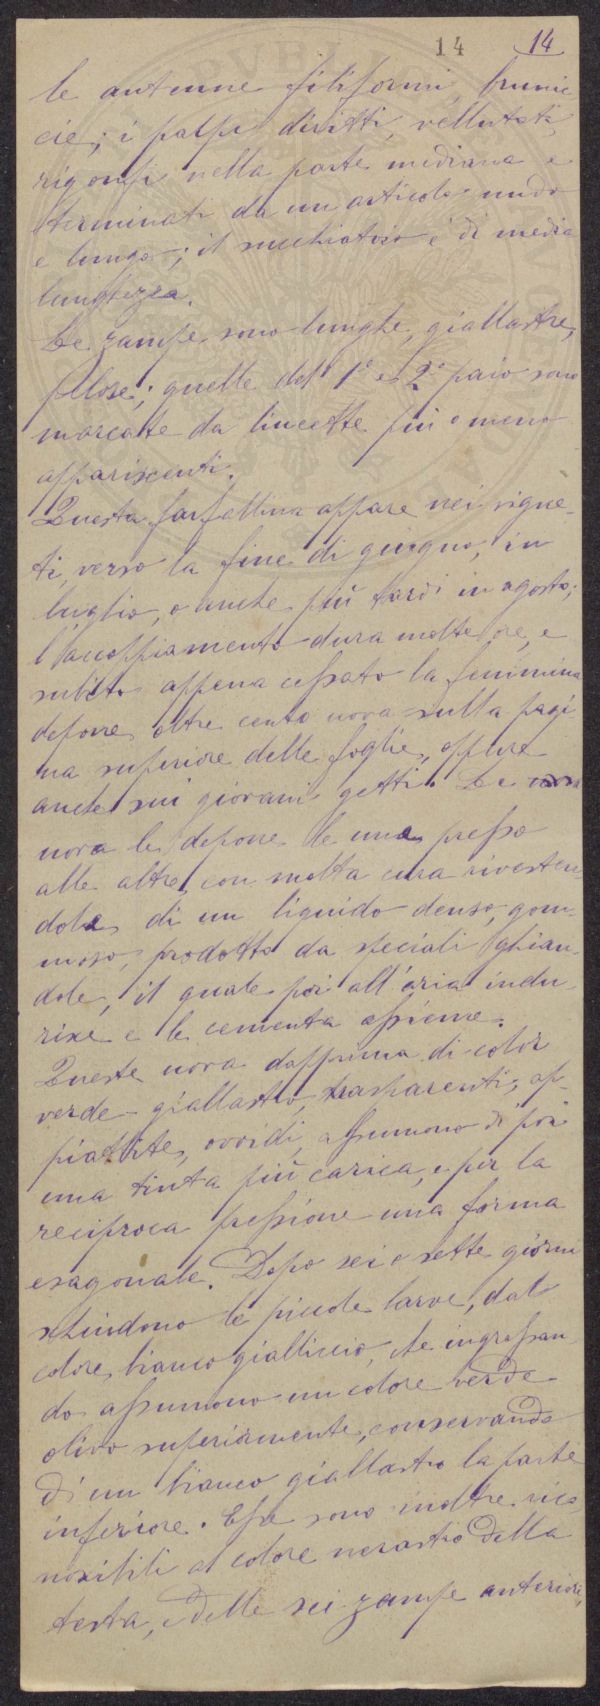 14 14
le antenne filiformi, brunic-
cie; i palpi diritti, vellutati,
rigonfi nella parte mediana e
terminati da un articolo nudo
e lungo; il succhiatoio è di media
lunghezza.
Le zampe sono lunghe, giallastre,
pelose; quelle del 1° e 2° paio sono
marcate da lineette più o meno
appariscenti.
Questa farfallina appare nei vigne-
ti, verso la fine di giugno, in
luglio, o anche più tardi in agosto;
l'accoppiamento dura molte ore, e
subito appena cessato la femmina
depone oltre cento uova sulla pagi
na superiore delle foglie, oppure
anche sui giovani getti. Le
uova le depone le une presso
alle altre con molta cura rivesten-
dole di un liquido denso, gom-
moso, prodotto da speciali ghian-
dole, il quale poi all'aria indu-
risce e le cementa assieme.
Queste uova dapprima di color
verde-giallastro, trasparenti, ap-
piattite, ovoidi, assumono di poi
una tinta più carica, e per la
reciproca pressione una forma
esagonale. Dopo sei o sette giorni
schiudono le piccole larve, dal
colore bianco gialliccio, che ingrossan
do assumono un colore verde
olivo superiormente, conservando
di un bianco giallastro la parte
inferiore. Esse sono inoltre rico
noscibili al colore nerastro della
testa, e delle sei zampe anteriori,